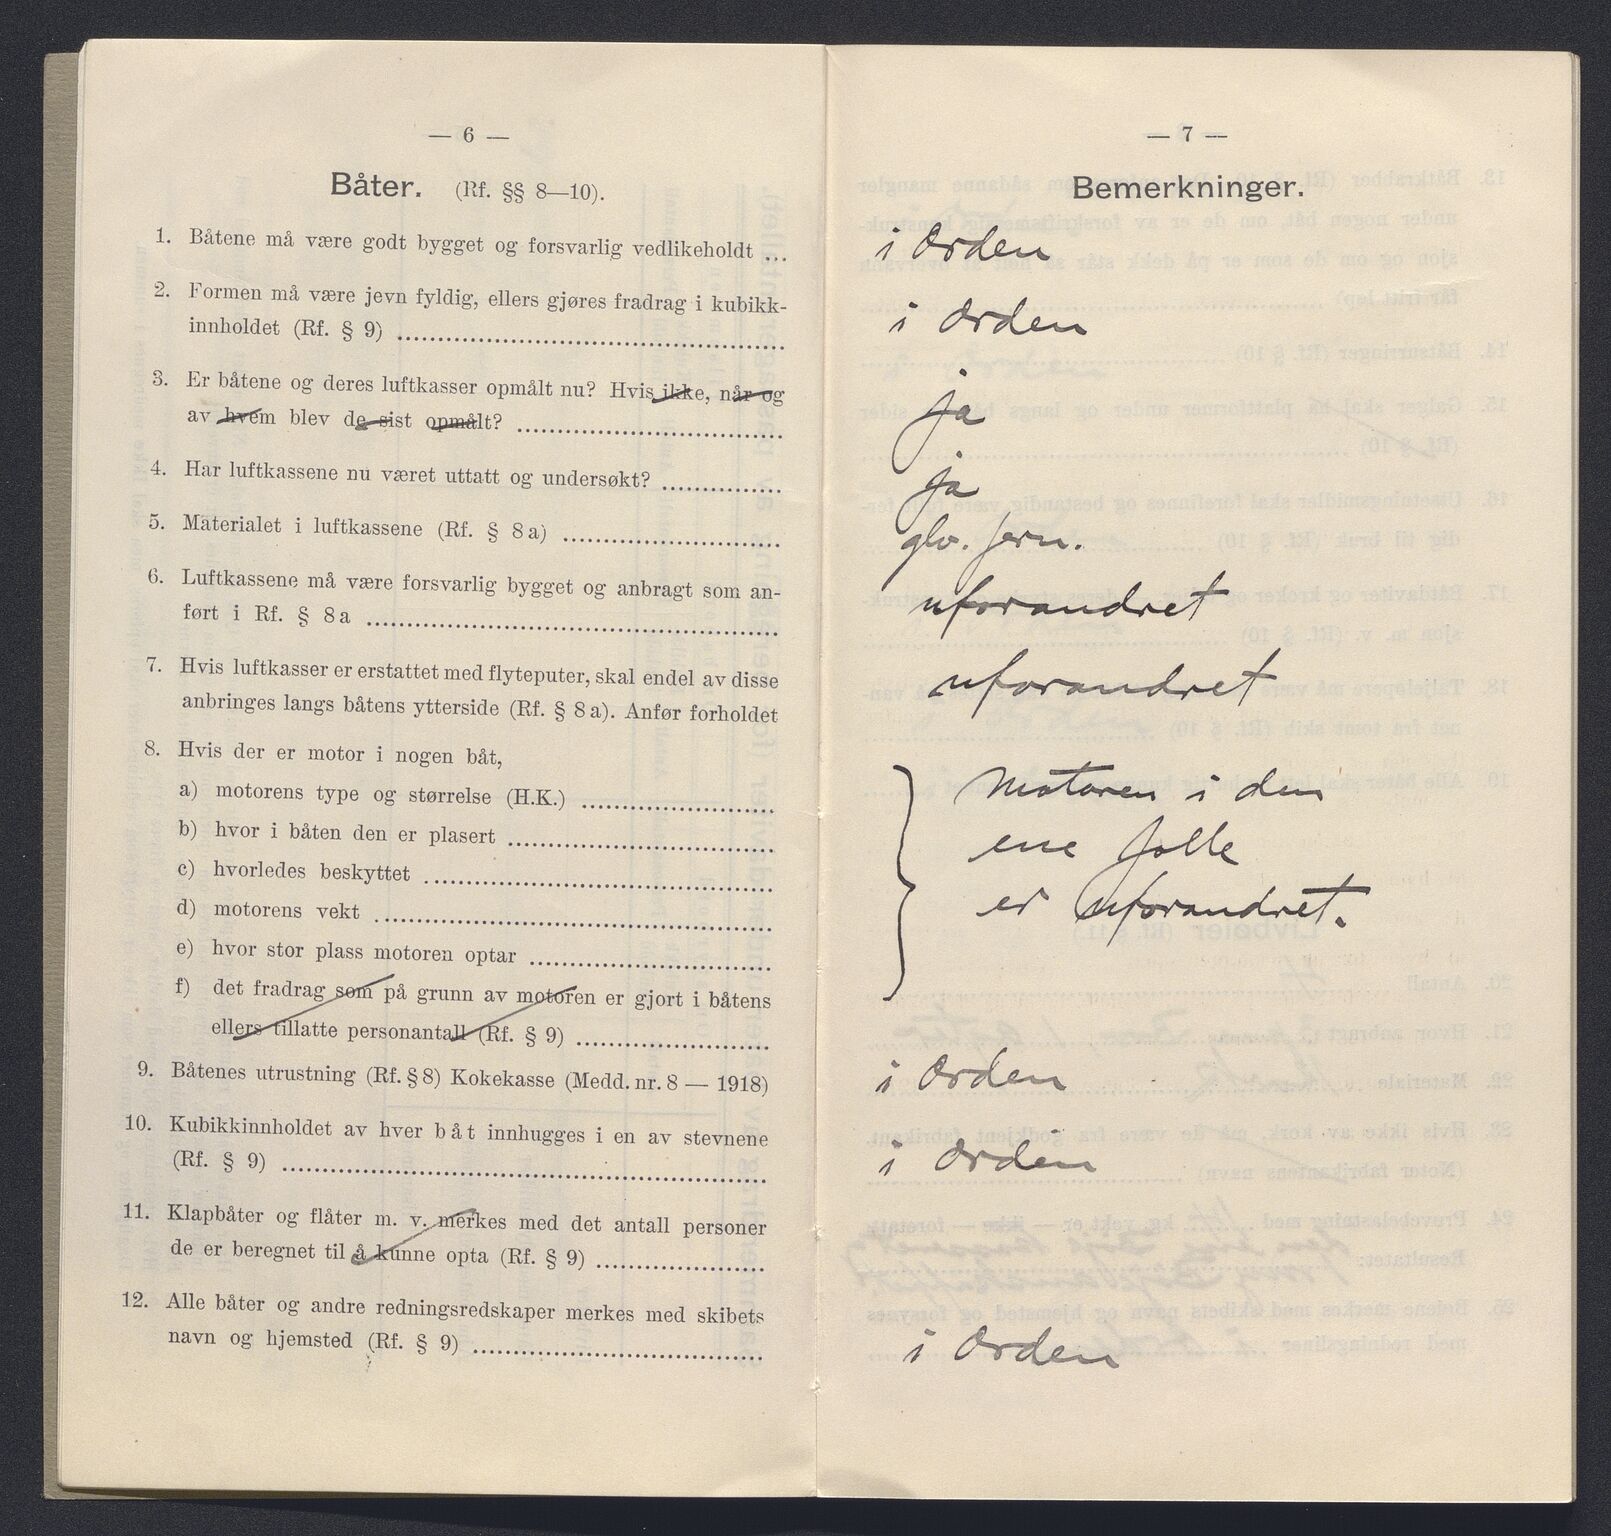 — 6 —
Båter. (Rf. §§ 8—10).
1. Båtene må være godt bygget og forsvarlig vedlikeholdt ...
2. Formen må være jevn fyldig, ellers gjøres fradrag i kubikk-
innholdet (Rf. § 9)
3. Er båtene og deres luftkasser opmålt nu? Hvis ikke, når og
av hvem blev de sist opmålt?
4. Har luftkassene nu været uttatt og undersøkt?
5. Materialet i luftkassene (Rf. § 8 a)
6. Luftkassene må være forsvarlig bygget og anbragt som an-
ført i Rf. § 8 a
7. Hvis luftkasser er erstattet med flyteputer, skal endel av disse
anbringes langs båtens ytterside (Rf. § 8 a). Anfør forholdet
8. Hvis der er motor i nogen båt,
a) motorens type og størrelse (H.K.)
b) hvor i båten den er plasert
c) hvorledes beskyttet
d) motorens vekt
e) hvor stor plass motoren optar
f) det fradrag som på grunn av motoren er gjort i båtens
ellers tillatte personantall (Rf. § 9)
9. Båtenes utrustning (Rf. § 8) Kokekasse (Medd. nr. 8 — 1918)
10. Kubikkinnholdet av hver båt innhugges i en av stevnene
(Rf. § 9)
11. Klapbåter og flåter m. v. merkes med det antall personer
de er beregnet til å kunne opta (Rf. § 9)
12. Alle båter og andre redningsredskaper merkes med skibets
navn og hjemsted (Rf. § 9)
— 7 —
Bemerkninger.
i orden
i orden
ja
ja
glv. jern.
uforandret
uforandret
Motoren i den
ene jolle
er uforandret.
i orden
i orden
i orden